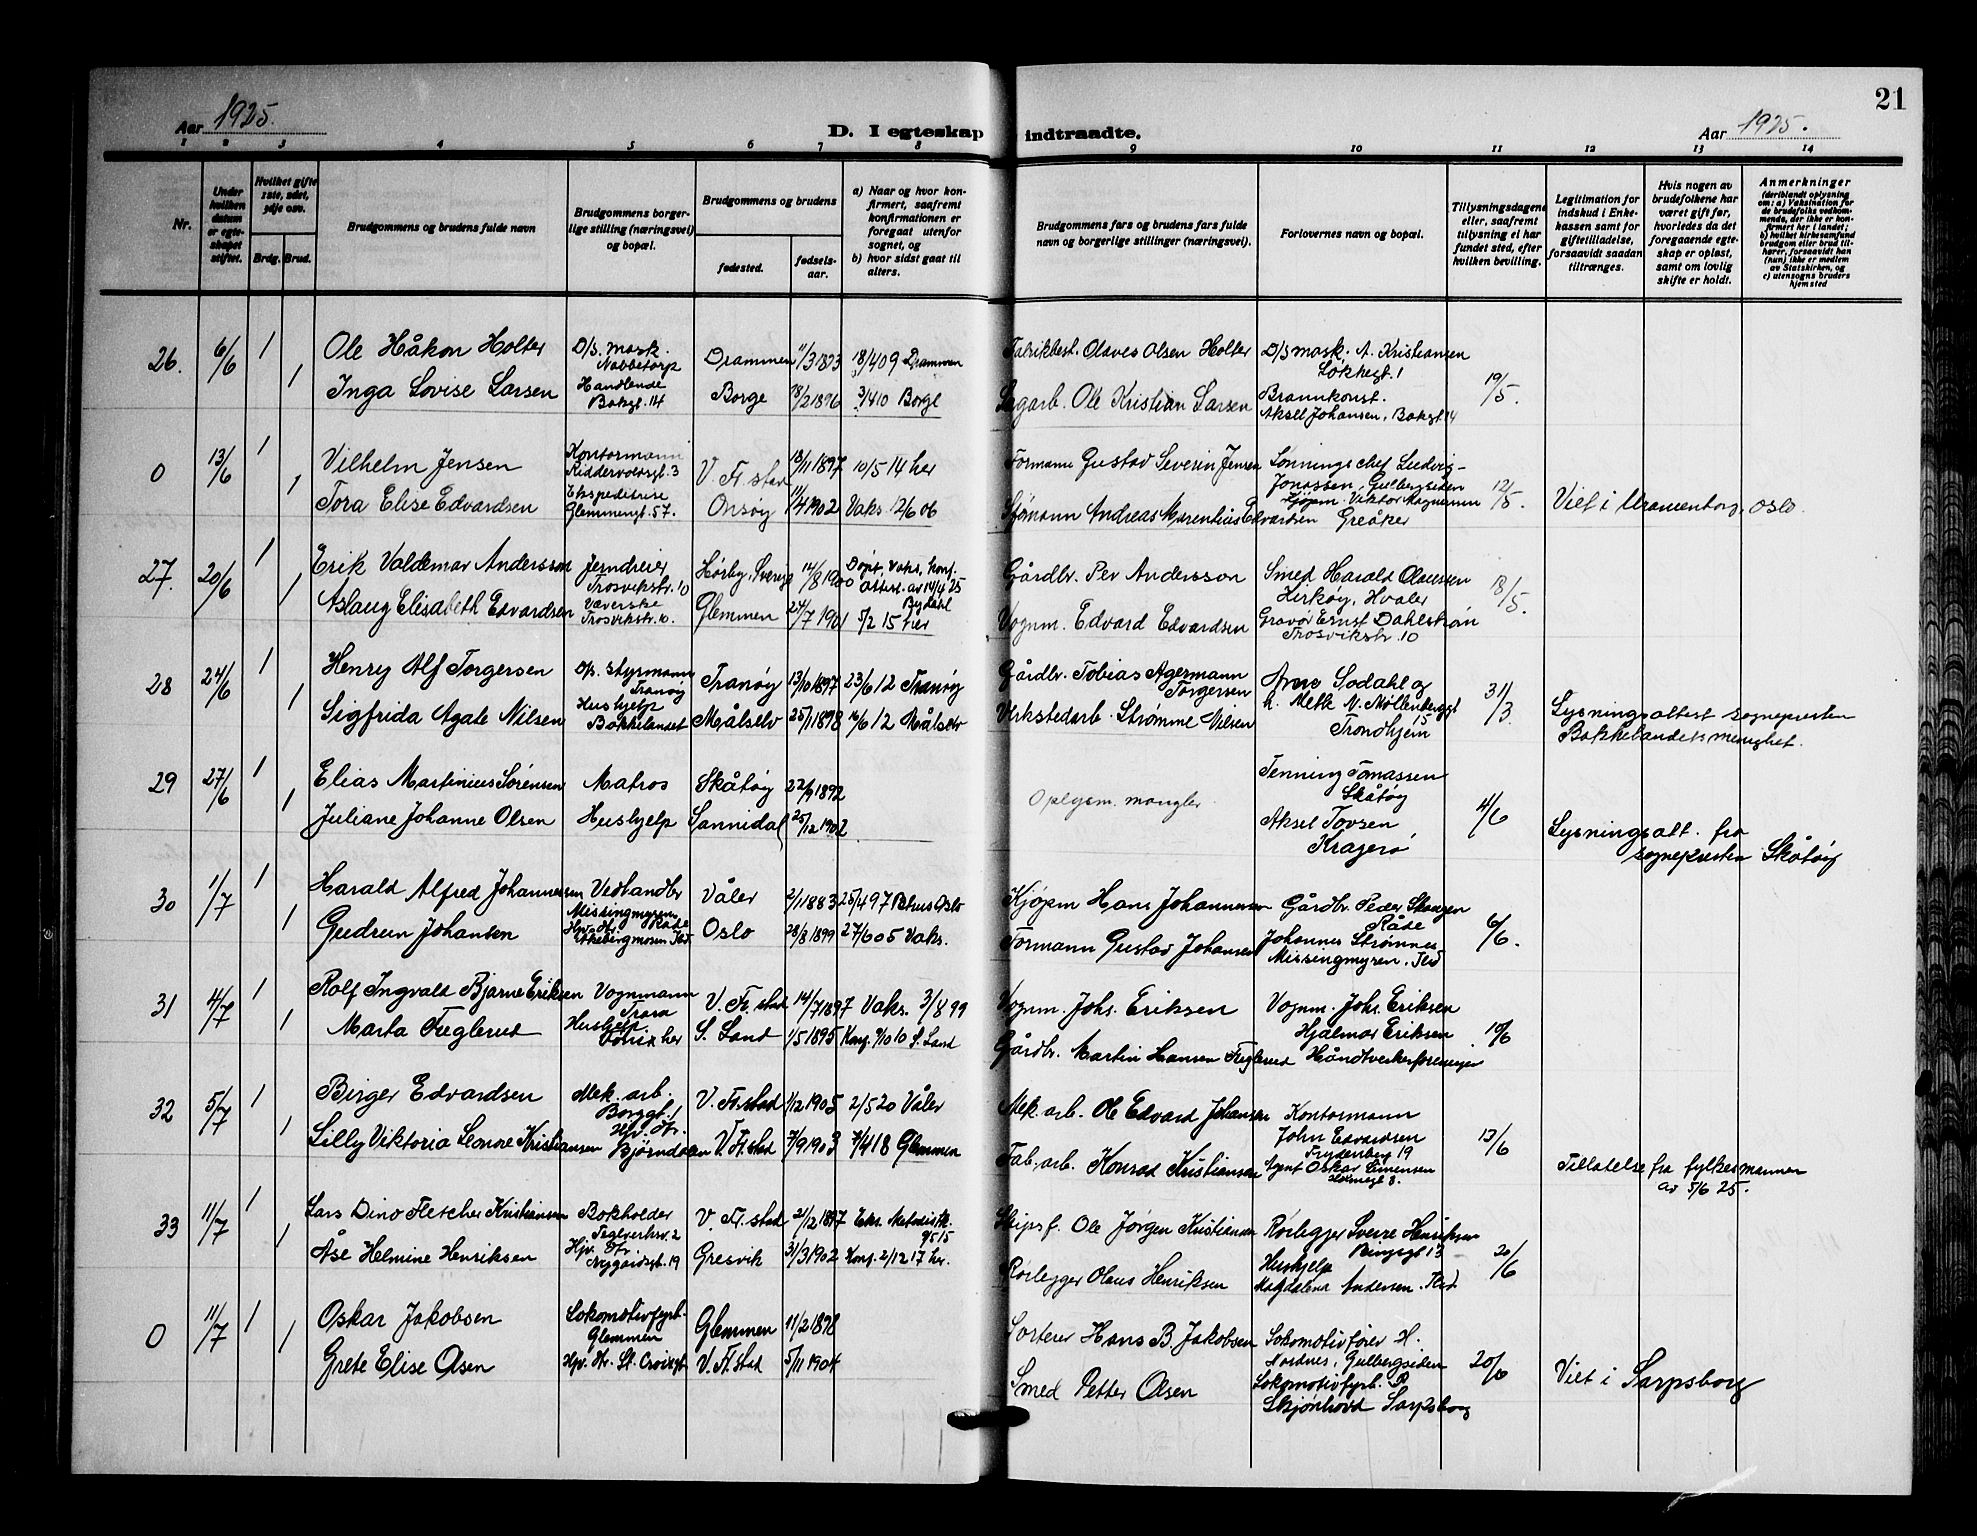 21
Aar 1925.
D. I egteskap indtraadte.
Aar 1925.
1 2 3 4 5 6 7 8 9 10 11 12 13 14
Nr.
Under hvilken datum er egteskapet stiftet.
Hvilket gifte 1ste, 2det, 3dje osv.
Brdg. Brud.
Brudgommens og brudens fulde navn
Brudgommens borgerlige stilling (næringsvei) og bopæl.
Brudgommens og brudens
fødested.
fødselsaar.
a) Naar og hvor konfirmert, saafremt konfirmationen er foregaat utenfor sognet, og
b) hvor sidst gaat til alters.
Brudgommens fars og brudens fars fulde navn og borgerlige stillinger (næringsvei).
Forlovernes navn og bopæl.
Tillysningsdagene eller, saafremt tillysning ei har fundet sted, efter hvilken bevilling.
Legitimation for indskud i Enkekassen samt for giftetilladelse, forsaavidt saadan tiltrænges.
Hvis nogen av brudefolkene har været gift før, hvorledes da det foregaaende egteskap er opløst, samt om lovlig skifte er holdt.
Anmerkninger
(deriblandt oplysning om: a) Vaksination for de brudefolks vedkommende, der ikke er konfirmert her i landet; b) hvilket kirkesamfund brudgom eller brud tilhører, forsaavidt han (hun) ikke er medlem av Statskirken, og c) utensogns bruders hjemsted
26. 6/6 1 Ole Håkon Holter D/S. mask. Nabbetorp Drammen 11/3 1893 18/4 09 Drammen Fabrikbest. Olaves Olsen Holter D/S mask. A. Kristiansen Løkkegt. 1
1 Inga Lovise Larsen Handlende Bakgt. 14 Borge 18/2 1896 3/4 10 Borge Sagarb. Ole Kristian Larsen Brannkonst. Aksel Johansen, Bakgt 14 19/5.
0 13/6 1 Vilhelm Jensen Kontormann Riddervoldsgt. 3 V. Fr. stad 18/11 1897 10/5 14 her Formann Gustav Severin Jensen Lønningschef Ludvig Jonassen, Gulbergsiden
1 Tora Elise Edvardsen Ekspeditrise Glemmengt. 57. Onsøy 11/4 1902 Vaks. 12/6 06 Sjømann Andreas Marentius Edvardsen Kjøpm. Viktor Magnussen Greåker 12/5. Viet i Uranienborg, Oslo.
27. 20/6 1 Erik Valdemar Andersson Jerndreier Trosvikstr. 10 Hørby, Sverige 14/8 1900 Døpt, vaks, konf. Attest. av 14/4 25 Gårdbr. Per Andersson Smed Harald Olaussen Kirkøy, Hvaler 18/5.
1 Aslaug Elisabeth Edvardsen Væverske Trosvikstr. 10. Glemmen 24/7 1901 5/2 15 her Vognm. Edvard Edvardsen Gravør Ernst Dahlstrøm Trosvikstr. 10
28 24/6 1 Henry Alf Torgersen Op. styrmann Tranøy Tranøy 13/10 1897 23/6 12 Tranøy Gårdbr. Tobias Agermann Torgersen Arne Sodahl og
1 Sigfrida Agate Nilsen Hushjelp Bakkelandet Målselv 25/1 1898 16/6 12 Målselv Verkstedarb. Strømme Nilsen h. Metk V. Møllenberggt 15 Trondhjem 31/3. Lysningsattest sognepresten Bakkelandets menighet.
29 27/6 1 Elias Martinius Sørensen Matros Skåtøy 22/9 1892 Oplysn. mangler Tenning Tomassen Skåtøy
1 Juliane Johanne Olsen Hushjelp Sannidal 25/12 1902 Aksel Tovsen Kragerø 4/6 Lysningsatt. fra sognepresten Skåtøy
30 1/7 1 Harald Alfred Johannessen Vedhandler Missingmyren Råde Våler 2/1 1883 25/4 97 Oslo Kjøpm Hans Johannessen Gårdbr. Peder Skaugen Råde
1 Gudrun Johansen Hjv. Hr. Oslo 28/8 1899 27/6 05 Vaks. Formann Gustav Johansen Johannes Strømnes Missingmyren. 6/6.
31 4/7 1 Rolf Ingvald Bjarne Eriksen Vognmann Trara V. Fr. stad 14/7 1897 Vaks. 3/8 99 Vognm. Johs. Eriksen Vognm. Johs. Eriksen
1 Marta Fuglerud Hushjelp her S. Land 1/5 1895 Konf. 9/10 10 S. Land Gårdbr. Martin Hansen Fuglerud Hjalmar Eriksen Håndtverkerforeningen 10/6
32 5/7 1 Birger Edvardsen Mek. arb. Borggt. 1 V. Fr. stad 1/2 1905 2/5 20 Våler Mek. arb. Ole Edvard Johansen Kontormann John Edvardsen Frydenberg 19
1 Lilly Viktoria Leonore Kristiansen Hjv. Hr. Bjørndalen V. Fr. stad 7/9 1903 7/4 18 Glemmen Fab. arb. Konrad Kristiansen Agent Oskar Simensen 13/6 Tillatelse fra fylkesmannen av 5/6 25.
33 11/7 1 Lars Dino Fletcher Kristiansen Bokholder Teglverksv. 2 V. Fr. stad 21/2 1897 Eks. Metodistk. 9/5 15 Skipsf. Ole Jørgen Kristiansen Rørlegger Sverre Henriksen Ringsgt 13
1 Åse Helmine Henriksen Hjv. Hr. Nygårdsgt. 19 Gresvik 31/3 1902 Konf. 2/12 17 her. Rørlegger Olaus Henriksen Hushjelp Magdalena Andersen. F.stad. 20/6
0 11/7 1 Oskar Jakobsen Lokomotivfyrb. Glemmen Glemmen 11/2 1898 Sorterer Hans B. Jakobsen Lokomotivfører H. Nordnes, Gulbergsiden
1 Grete Elise Olsen Hjv. Hr. St. Croixgt. V. Fr. stad 5/11 1904 Smed Petter Olsen Lokomotivfyrb. R. Skjønhovd Sarpsborg 20/6 Viet i Sarpsborg